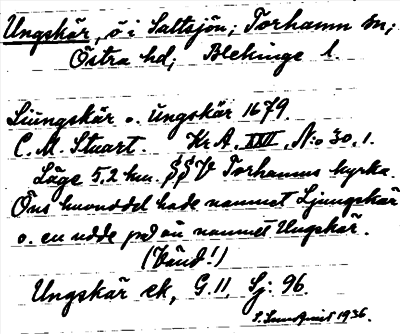 Ungskär, ö i Saltsjön; Torhamn sn;
Östra hd; Blekinge l.
Liungskär o. Ungskär 1679.
C. M. Stuart. Kr. A. XXII, No 30, 1.
Läge 5,2 km. SSV Torhamns kyrka.
Öns huvuddel hade namnet Ljungskär
o. en udde på ön namnet Ungskär.
(Vänd!)
Ungskär ek, G. 11, Sj: 96.
1936.